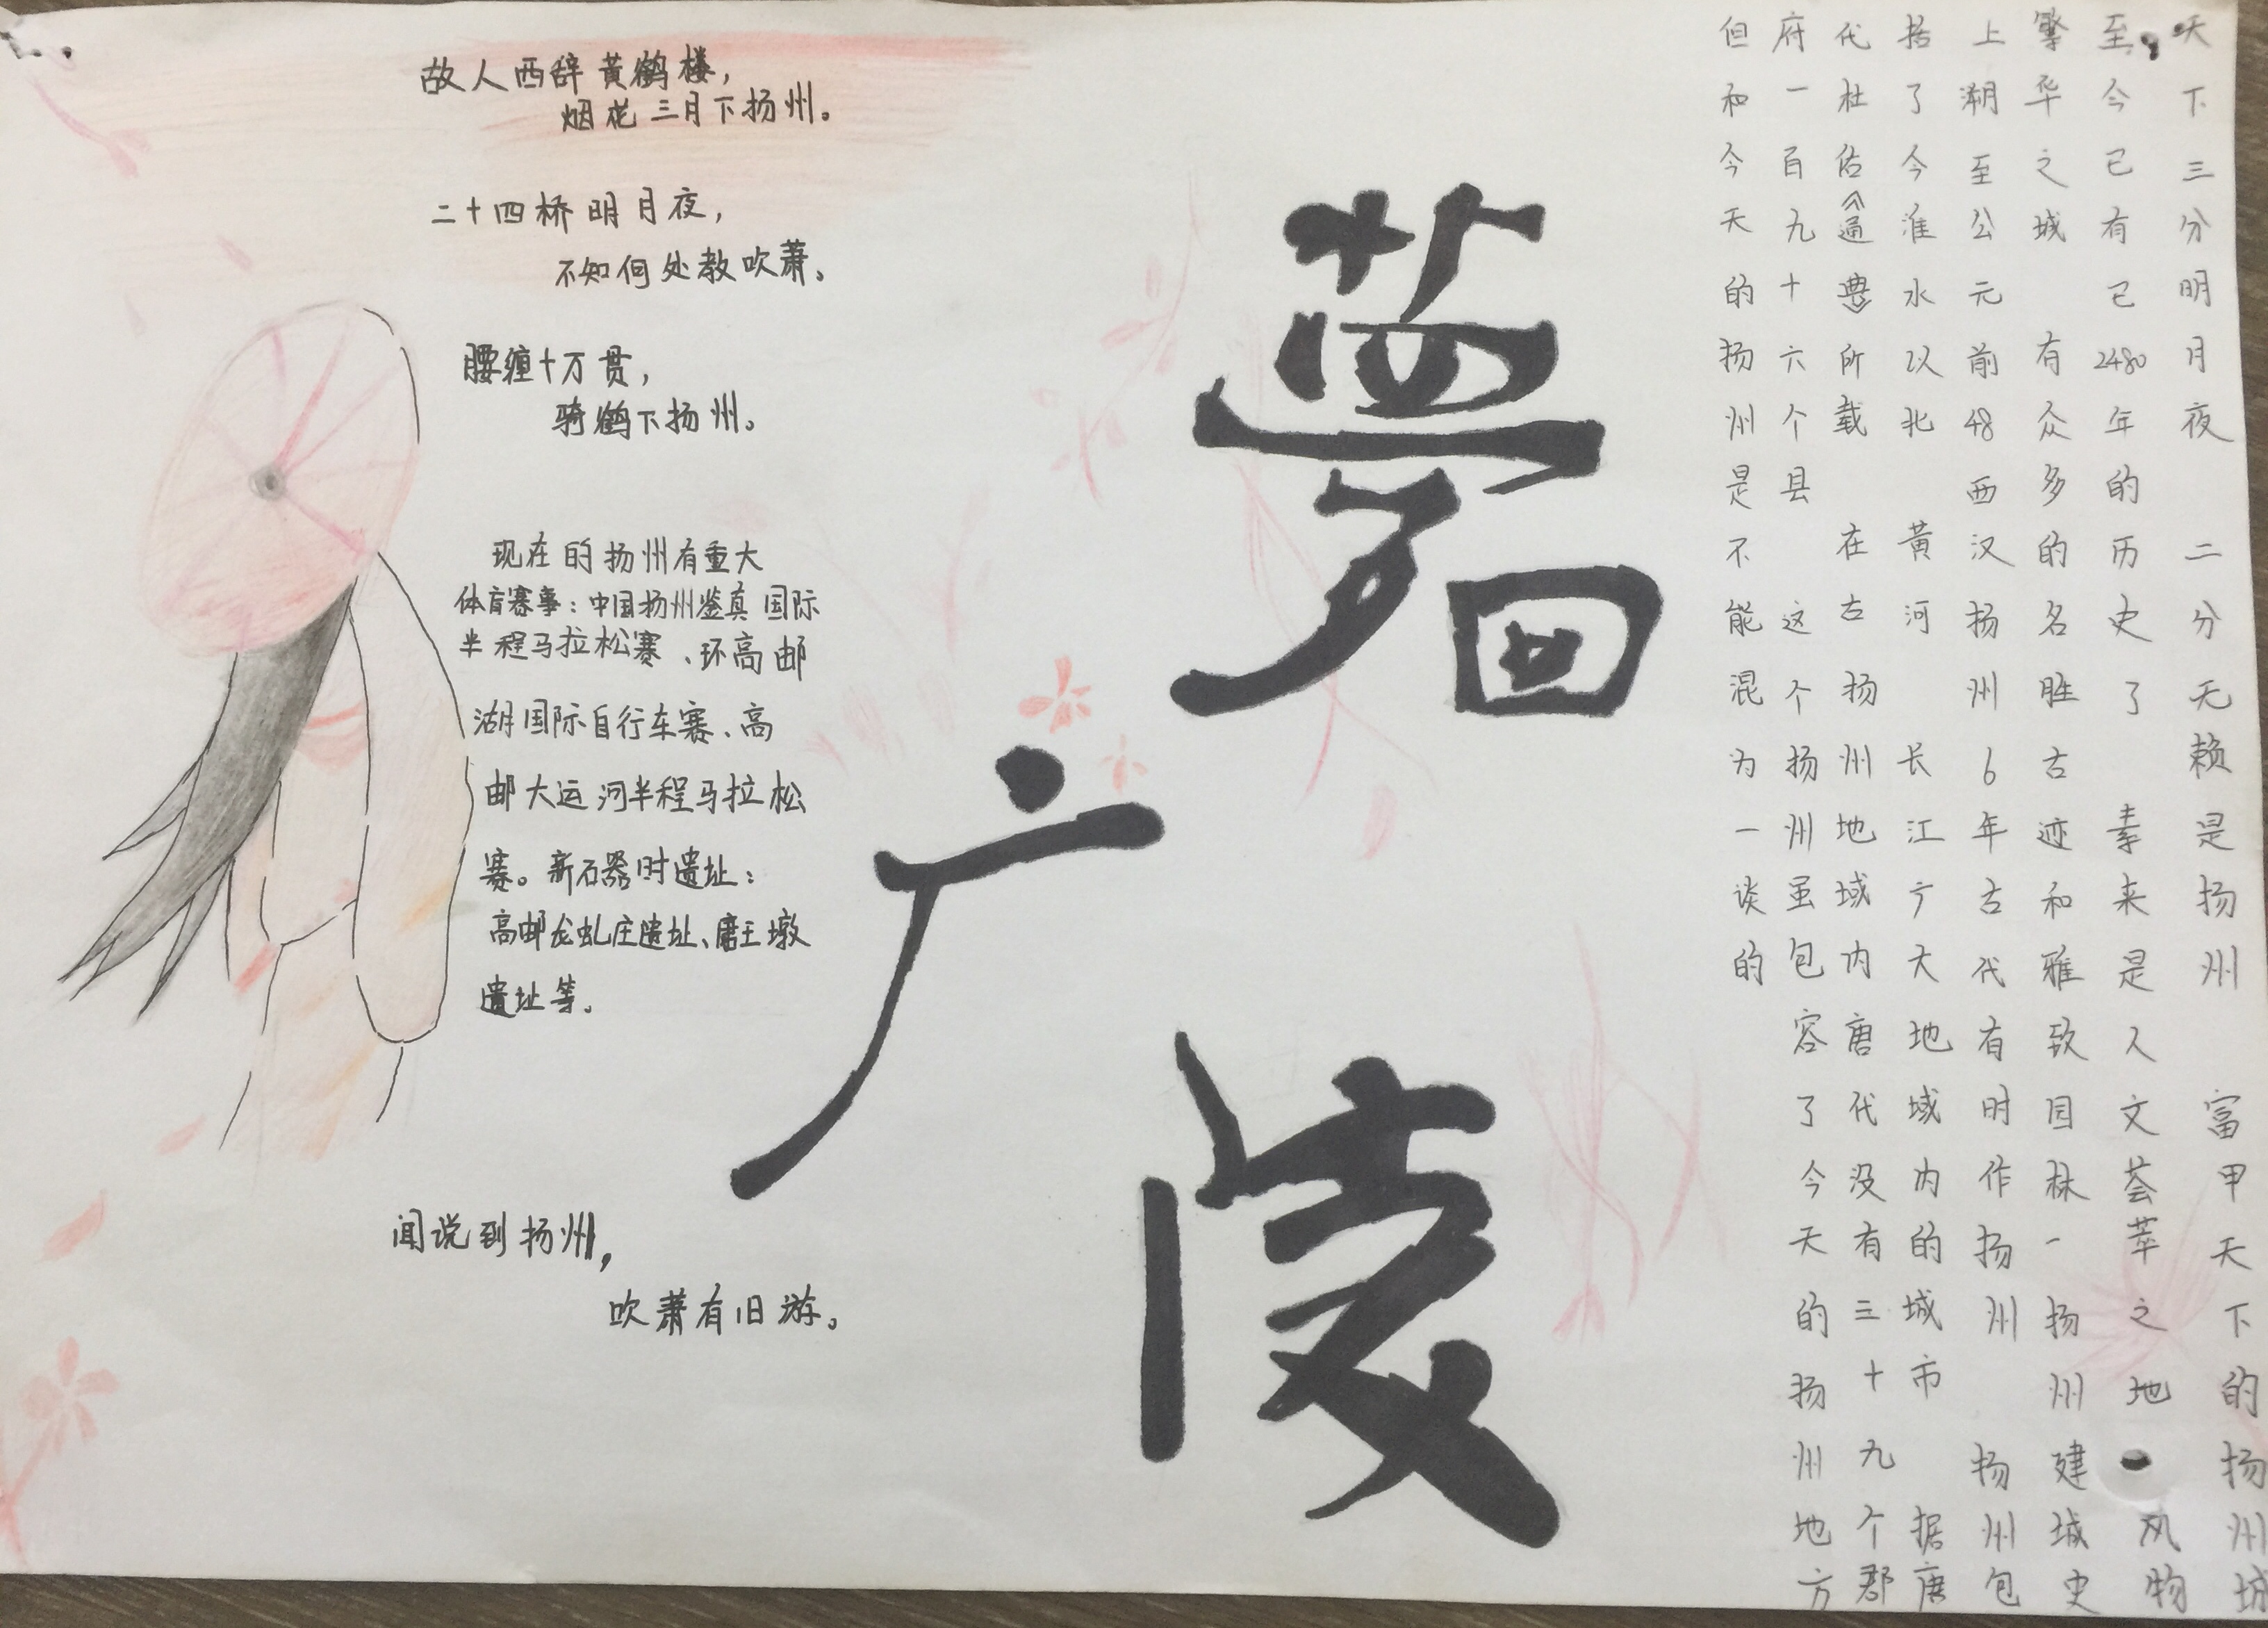 故人西辞黄鹤楼，
烟花三月下扬州。
二十四桥明月夜，
不知何处教吹萧。
腰缠十万贯，
骑鹤下扬州。
现在的扬州有重大
体育赛事：中国扬州鉴真国际
半程马拉松赛、环高邮
湖国际自行车赛、高
邮大运河半程马拉松
赛。新石器时遗址：
高邮龙虬庄遗址、磨王墩
遗址等。
闻说到扬州，
吹萧有旧游。
夢回
广
陵
天下三分明月夜 二分无赖是扬州 富甲天下的扬州城
至今已有已2480年的历史了 素来是人文荟萃之地 风物
繁华之城 有众多的名胜古迹和雅致园林－扬州建城史
上溯至公元前48西汉扬州6年古代有时作扬州 扬州包
括了今淮水以北 黄河 长江宁大地域内的城市 据唐
代杜佑《通典》所载 在古扬州地域内唐代没有三十九个郡
府一百九十六个县 这个扬州虽包容了今天的扬州地方
但和今天的扬州是不能混为一谈的